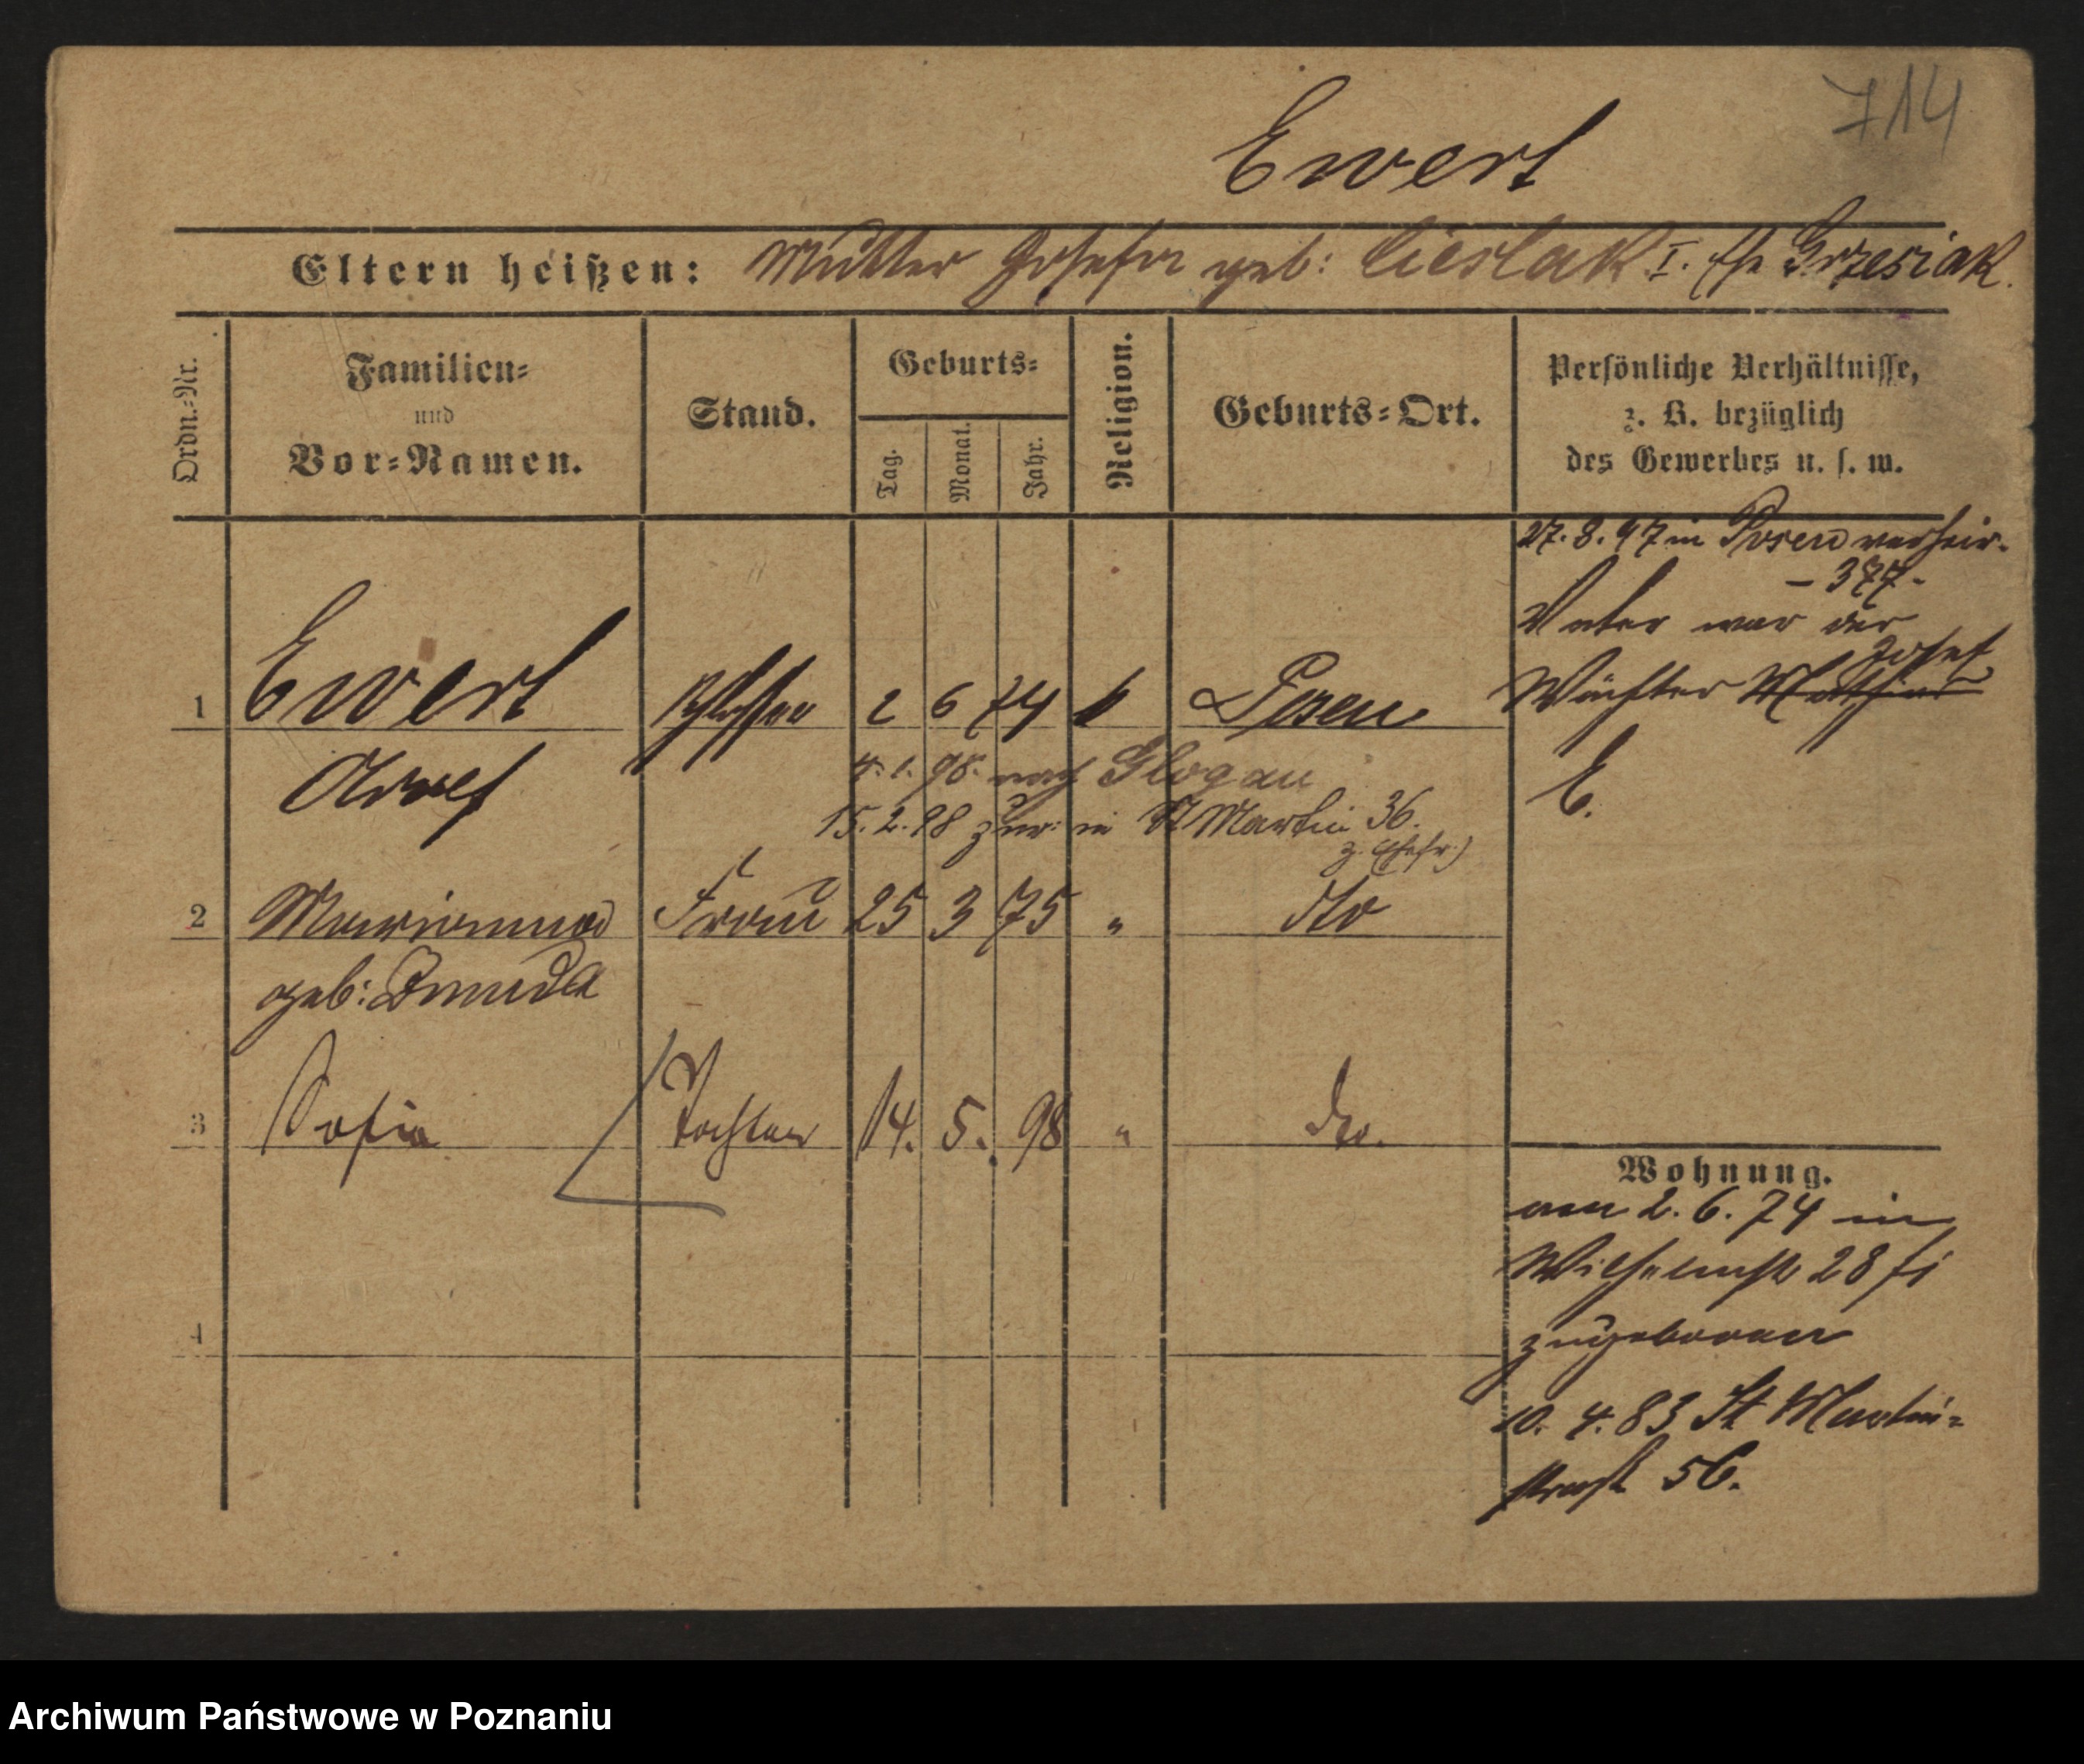 714
Ewert
Eltern heißen: Mutter Josefa geb: Cieslak I. Ehe Grzesiak.
Ordn.=Nr.
Familien=
und
Vor=Namen.
Stand.
Geburts=
Tag.
Monat.
Jahr.
Religion.
Geburts=Ort.
Persönliche Verhältnisse,
z. B. bezüglich
des Gewerbes u. s. w.
27. 8. 97 in Posen verheir.
- 377 -
Vater war der
Josef
Wächter Mathias
E.
1 Ewert Schlosser 2 6 74 k Posen
4. 1. 98. nach Glogau
15. 2. 98 zur: in St Martin 36.
z. Ehefr.)
2 Marianna Frau 25 3 75 " dto
geb:
3 Sofia Tochter 14. 5. 98 " dto.
4
Wohnung.
am 2. 6. 74 in
Wilhelmstr 28 hi
zugeboren
10. 4. 83 St Martin=
straße 56.
Archiwum Państwowe w Poznaniu